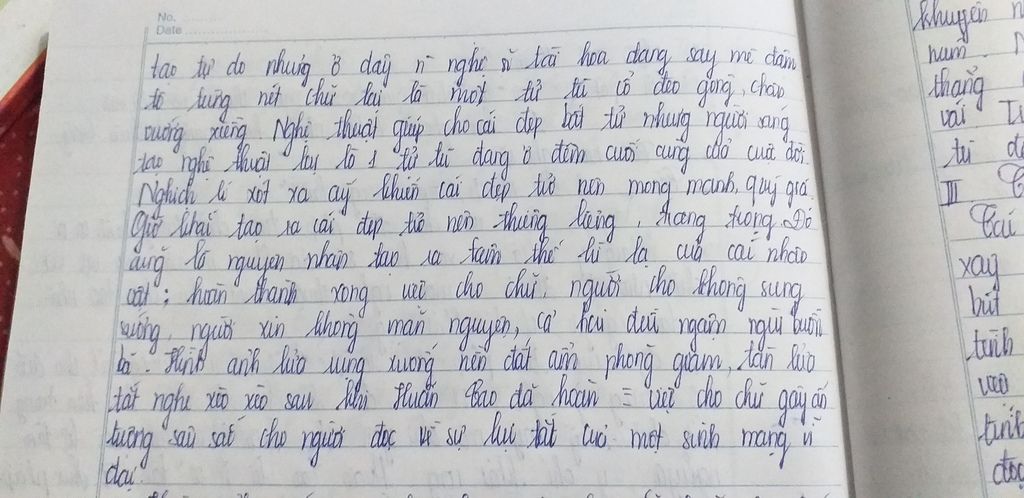 No.
Date
tạo tự do nhưng ở đây nghệ sĩ tài hoa đang say mê dậm
tô từng nét chữ lại là một tử tù cổ đeo gông, chân
vướng xiềng. Nghệ thuật giúp cho cái đẹp bất tử nhưng người sáng
tạo nghệ thuật lại là 1 tử tù đang ở đêm cuối cùng của cuộc đời.
Nghịch lí xót xa ấy khiến cái đẹp trở nên mong manh, quý giá.
Giờ khắc tạo ra cái đẹp trở nên thiêng liêng, trang trọng. Đó
cũng là nguyên nhân tạo ra tâm thế kì lạ của các nhân
vật; hoàn thành xong việc cho chữ, người cho không sung
sướng, người xin không mãn nguyện, cả hai đều ngậm ngùi buồn
bã. Hình ảnh lửa rụng xuống nền đất ẩm phòng giam, tàn lửa
tắt nghe xèo xèo sau khi Huấn Cao đã hoàn = việc cho chữ gây ấn
tượng sâu sắc cho người đọc về sự lụi tắt của một sinh mạng vĩ
đại.
khuyên
nam.
thẳng
với
tù
III
Cái
xay
bút
tình
vào
tình
đọc